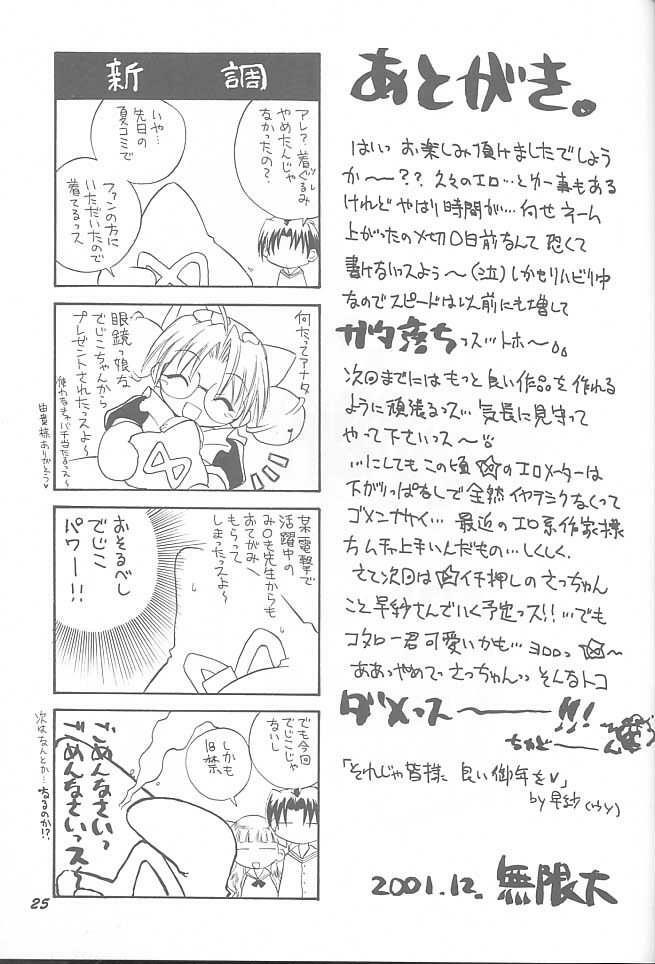 あとがき。
はいっ お楽しみ頂けましたでしょう
か〜〜?? 久々のエロ…と
けれど やはり時間が… 何せネーム
上がったの〆切〇日前なんて 恐くて
書けないっスよう〜(泣) しかもリハビリ中
なのでスピードは以前にも増して
ガタ落ちっス…トホ〜
次回までにはもっと良い作品を作れる
ように頑張るっス… 気長に見守って
やって下さいっス〜
…にしても この頃 ☆のエロメーターは
下がりっぱなしで全然イヤラシクなくって
ゴメンナサイ… 最近のエロ系作家様
ちムチャ上手いんだもの…しくしく。
さて次回は☆イチ押しの さっちゃん
こと早紗さんでいく予定っス!!…でも
コタロー君可愛いかも… ヨロロっ ☆〜
ああっ やめてっ さっちゃんっ そんなトコ
ダメっス〜〜!!!
ちゅどーーん
「それじゃ皆様 良い御年を♥」
by 早紗(ウソ)
2001.12. 無限大
新調
アレ?着ぐるみ
やめたんじゃ
なかったの?
いや…
先日の
夏コミで
ファンの方に
いただいたので
着てるっス
何たってアナタ
眼鏡っ娘な
でじこちゃんから
プレゼントされたっスよ〜
使わなきゃバチ当たるっス〜
由貴様ありがとう♥
某電撃で
活躍中の
み〇も先生からも
おてがみ
もらって
しまったっスよ〜
おそるべし
でじこ
パワー!!
でも今回
でじこじゃ
ないし
しかも
18禁
ごめんなさいっ
ごめんなさいっス
次はなんとか…なるのか!?
25